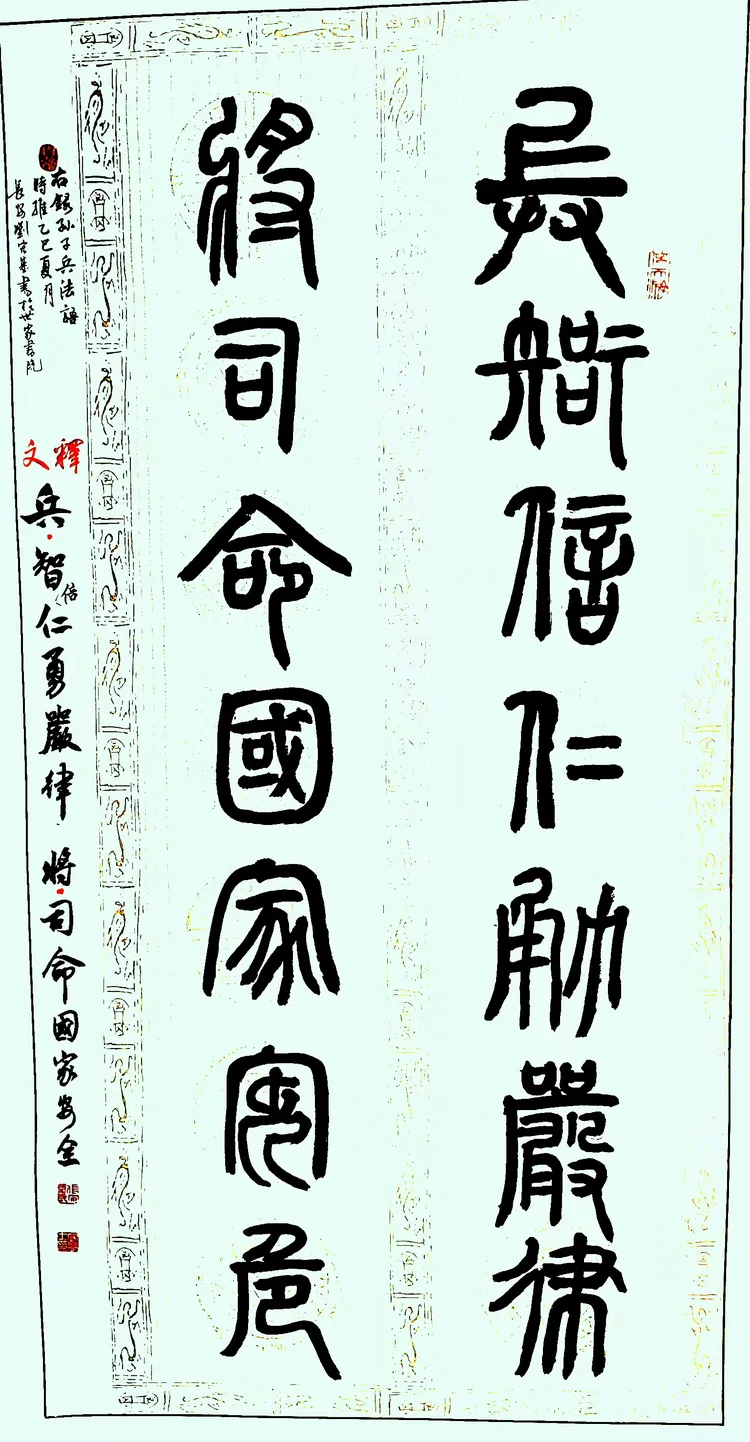 長智信仁勇嚴律
將司命國家安危
右錄孙子兵法語
時維乙巳夏月
長安劉書於世家書院
釋文
兵·智信仁勇嚴律 將·司命國家安全